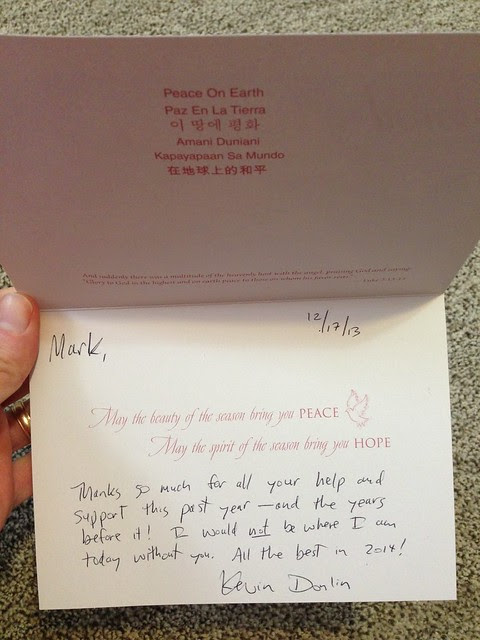 Peace On Earth
Paz En La Tierra
이 땅에 평화
Amani Duniani
Kapayapaan Sa Mundo
在地球上的和平
And suddenly there was a multitude of the heavenly host with the angel, praising God and saying:
"Glory to God in the highest and on earth peace to those on whom his favor rests."
Luke 2:13-14
12/17/13
Mark,
May the beauty of the season bring you PEACE
May the spirit of the season bring you HOPE
Thanks so much for all your help and
support this past year — and the years
before it! I would not be where I am
today without you. All the best in 2014!
Kevin Donlin